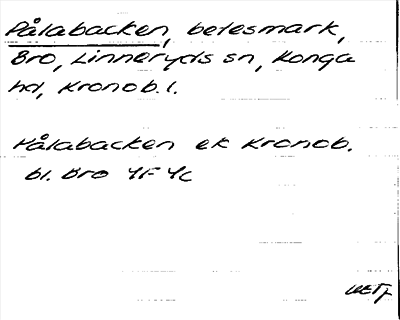 Pålabacken, betesmark,
Bro, Linneryds sn, Konga
hd, Kronob. l.
Pålabacken ek Kronob.
bl. Bro 4F 4c